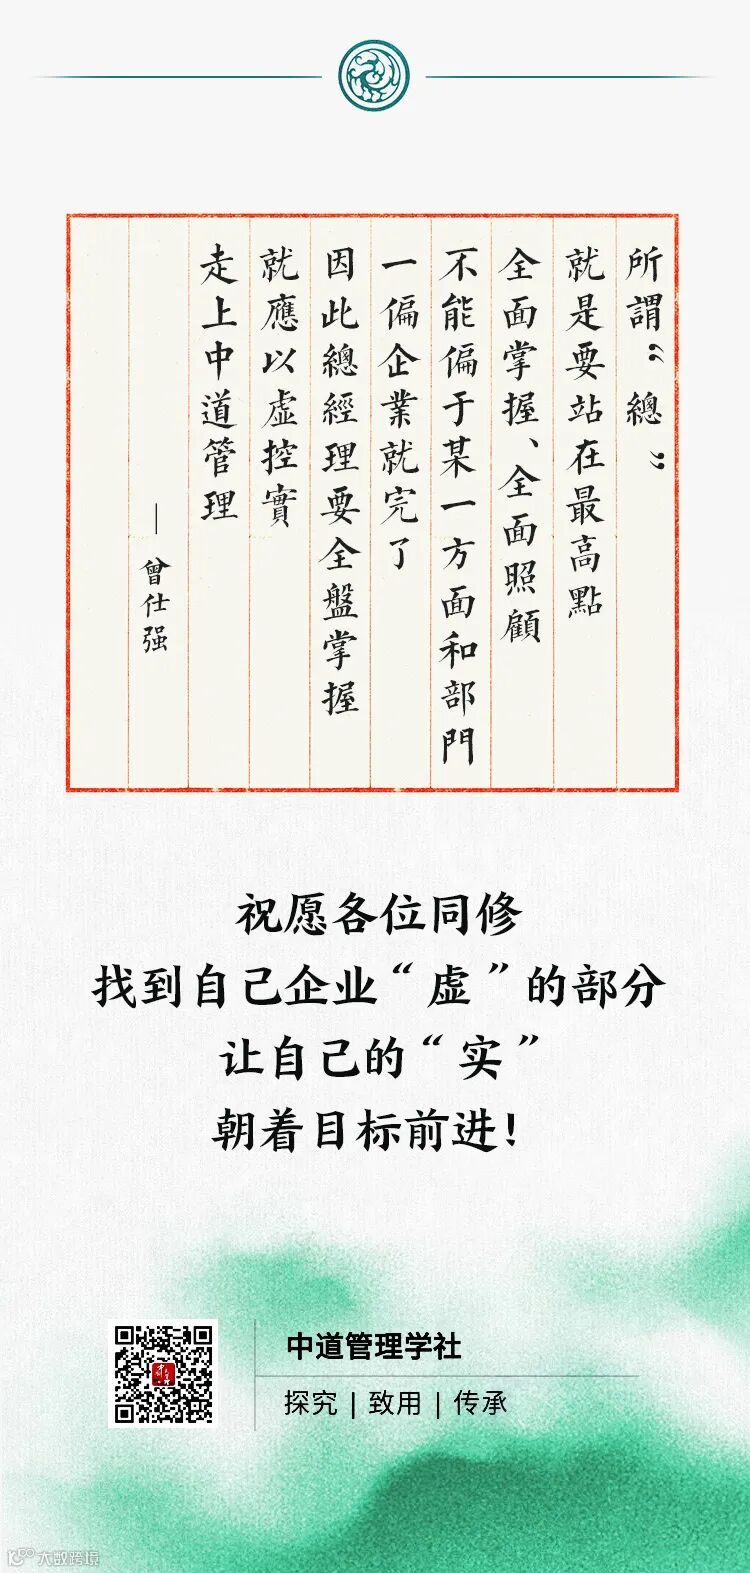 所謂“總”
就是要站在最高點
全面掌握、全面照顧
不能偏于某一方面和部門
一偏企業就完了
因此總經理要全盤掌握
就應以虛控實
走上中道管理
—曾仕强
祝愿各位同修
找到自己企业“虚”的部分
让自己的“实”
朝着目标前进！
中道管理学社
探究 | 致用 | 传承
大数跨境